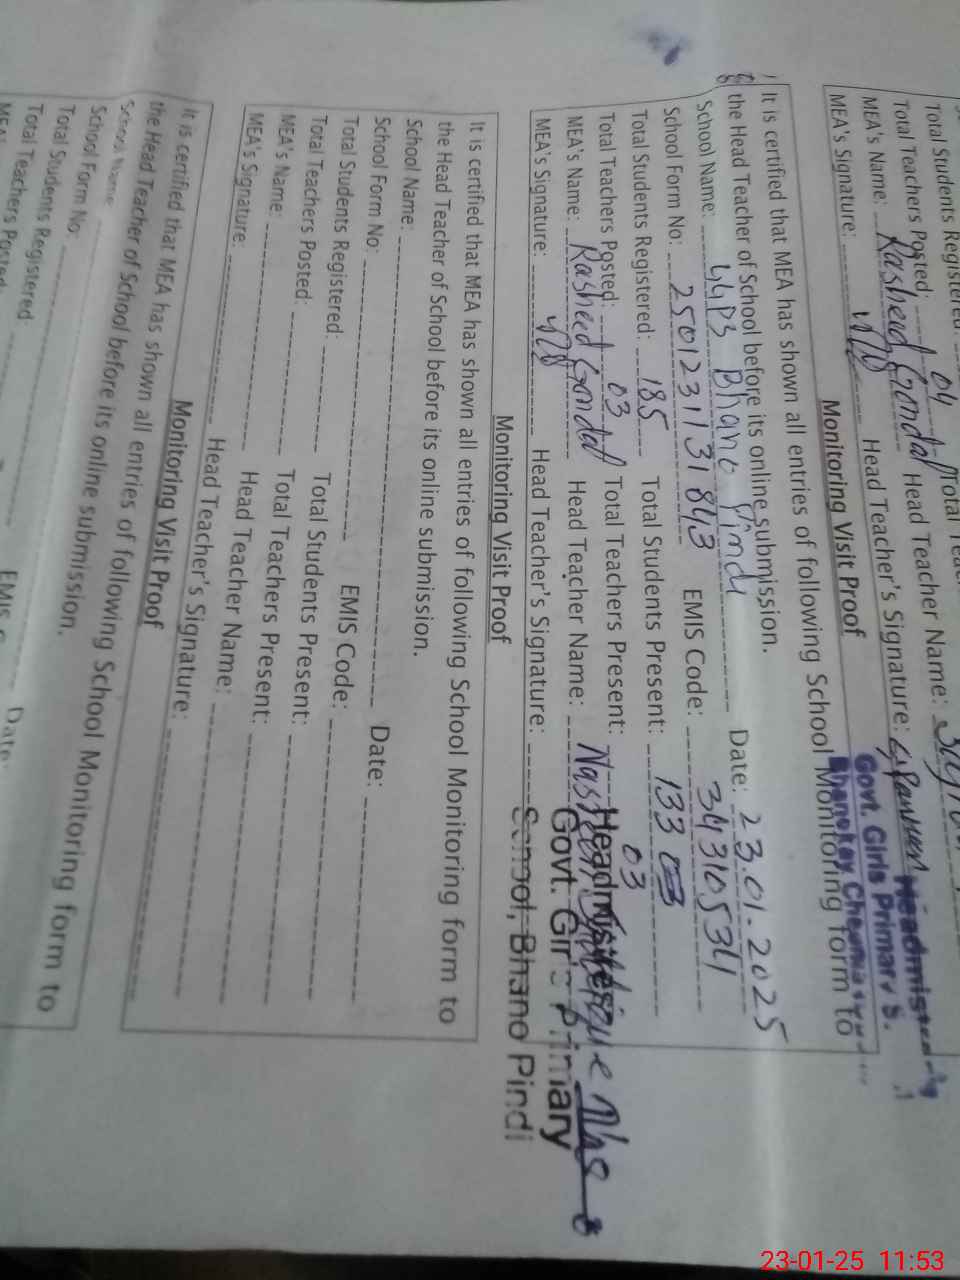 Total Students Registered:
Total Teachers Posted: 04 Total
MEA's Name: Rasheed Gondal Head Teacher Name:
MEA's Signature: Head Teacher's Signature:
Headmistress
Govt. Girls Primary S.
Monitoring Visit Proof
It is certified that MEA has shown all entries of following School Monitoring form to
the Head Teacher of School before its online submission.
School Name: GGPS Bhano Pindi Date: 23.01.2025
School Form No: 250123131843 EMIS Code: 34310534
Total Students Registered: 185 Total Students Present: 133
Total Teachers Posted: 03 Total Teachers Present: 03
MEA's Name: Rasheed Gondal Head Teacher Name:
MEA's Signature: Head Teacher's Signature:
Headmistress
Govt. Girls Primary
School, Bhano Pindi
Monitoring Visit Proof
It is certified that MEA has shown all entries of following School Monitoring form to
the Head Teacher of School before its online submission.
School Name: Date:
School Form No: EMIS Code:
Total Students Registered: Total Students Present:
Total Teachers Posted: Total Teachers Present:
MEA's Name: Head Teacher Name:
MEA's Signature: Head Teacher's Signature:
Monitoring Visit Proof
It is certified that MEA has shown all entries of following School Monitoring form to
the Head Teacher of School before its online submission.
School Name: Date:
School Form No: EMIS
Total Students Registered:
Total Teachers Posted:
23-01-25 11:53